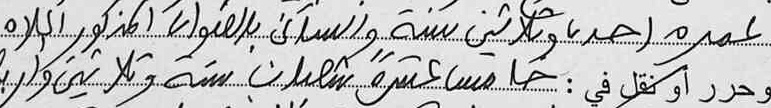 عمره احدى وثلاثين سنة والساكن بالعنوان المذكور اعلاه
وحرر أو نقل في : خامس عشرة شعبان سنة وثلاثين وأربع